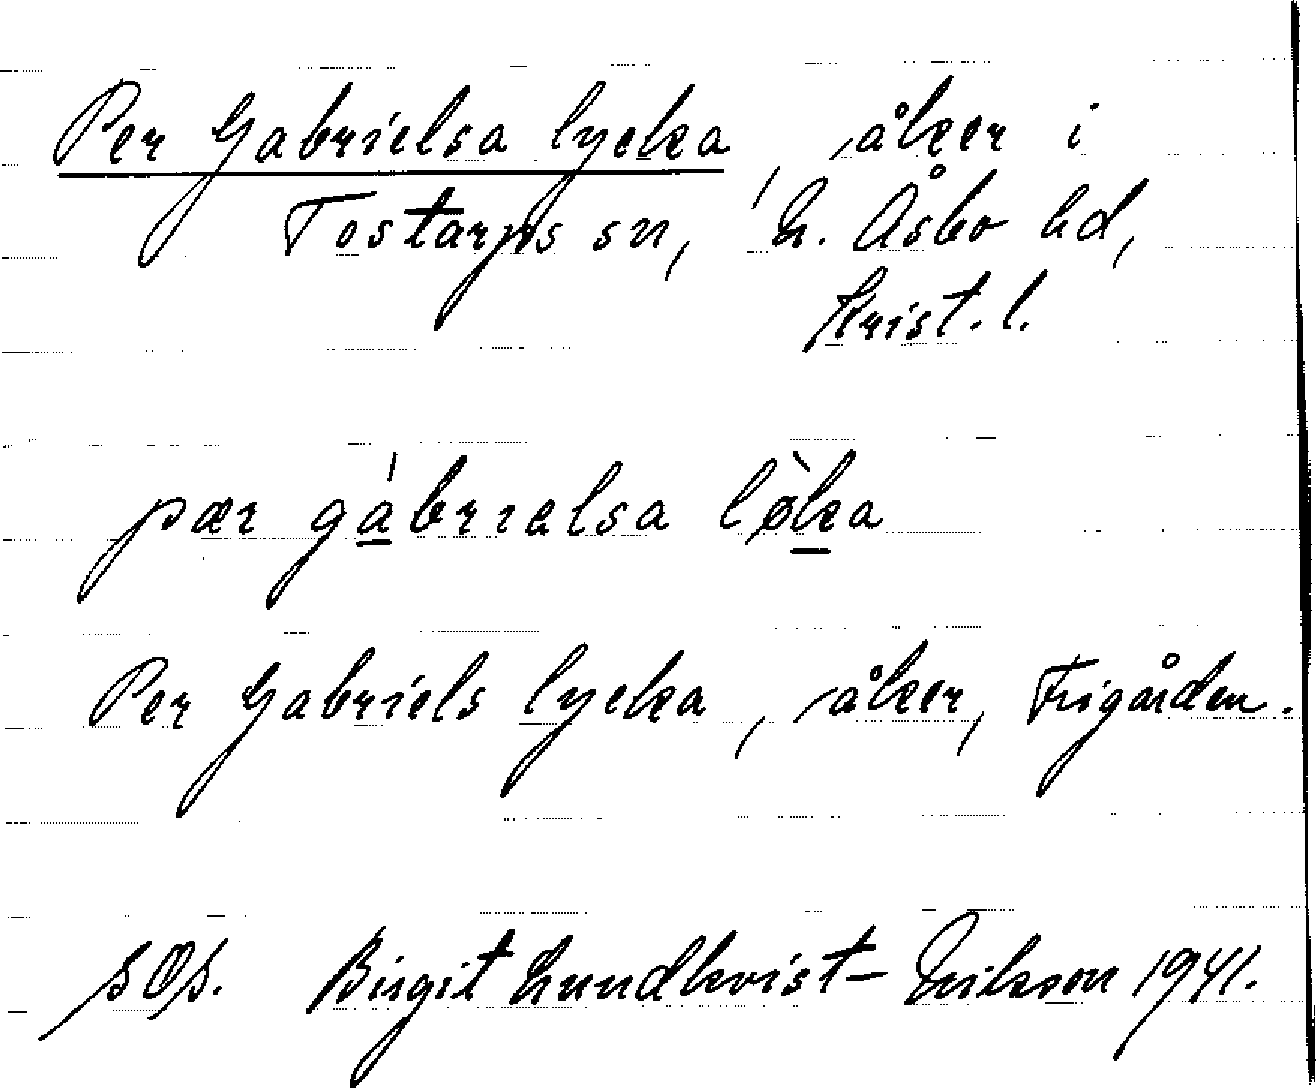 Per Gabrielsa lycka, åker i
Tostarps sn, N. Åsbo hd,
Krist. l.
pær gábrielsa lø̀ka
Per Gabriels lycka, åker, Frigården.
SOS. Birgit Lundkvist-Erikson 1941.